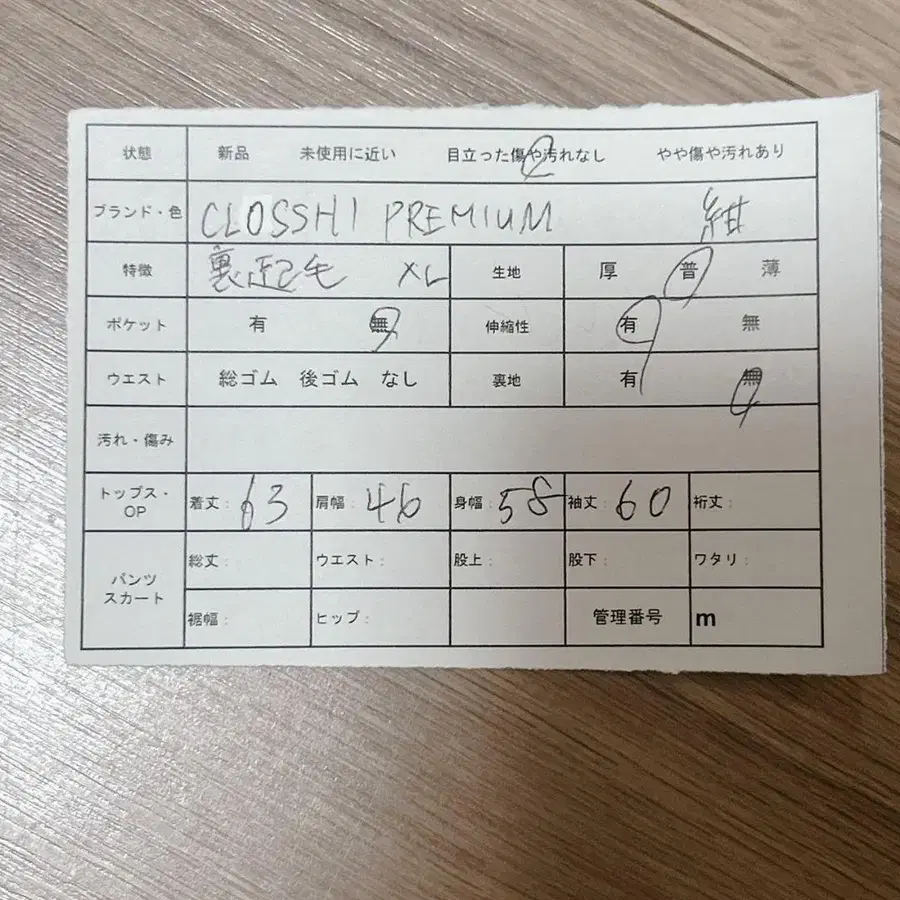 状態 新品 未使用に近い 目立った傷や汚れなし やや傷や汚れあり
ブランド・色 CLOSSHI PREMIUM 紺
特徴 裏起毛 XL 生地 厚 普 薄
ポケット 有 無 伸縮性 有 無
ウエスト 総ゴム 後ゴム なし 裏地 有 無
汚れ・傷み
トップス・OP 着丈: 63 肩幅: 46 身幅: 58 袖丈: 60 裄丈:
パンツ スカート 総丈: ウエスト: 股上: 股下: ワタリ:
裾幅: ヒップ: 管理番号 m